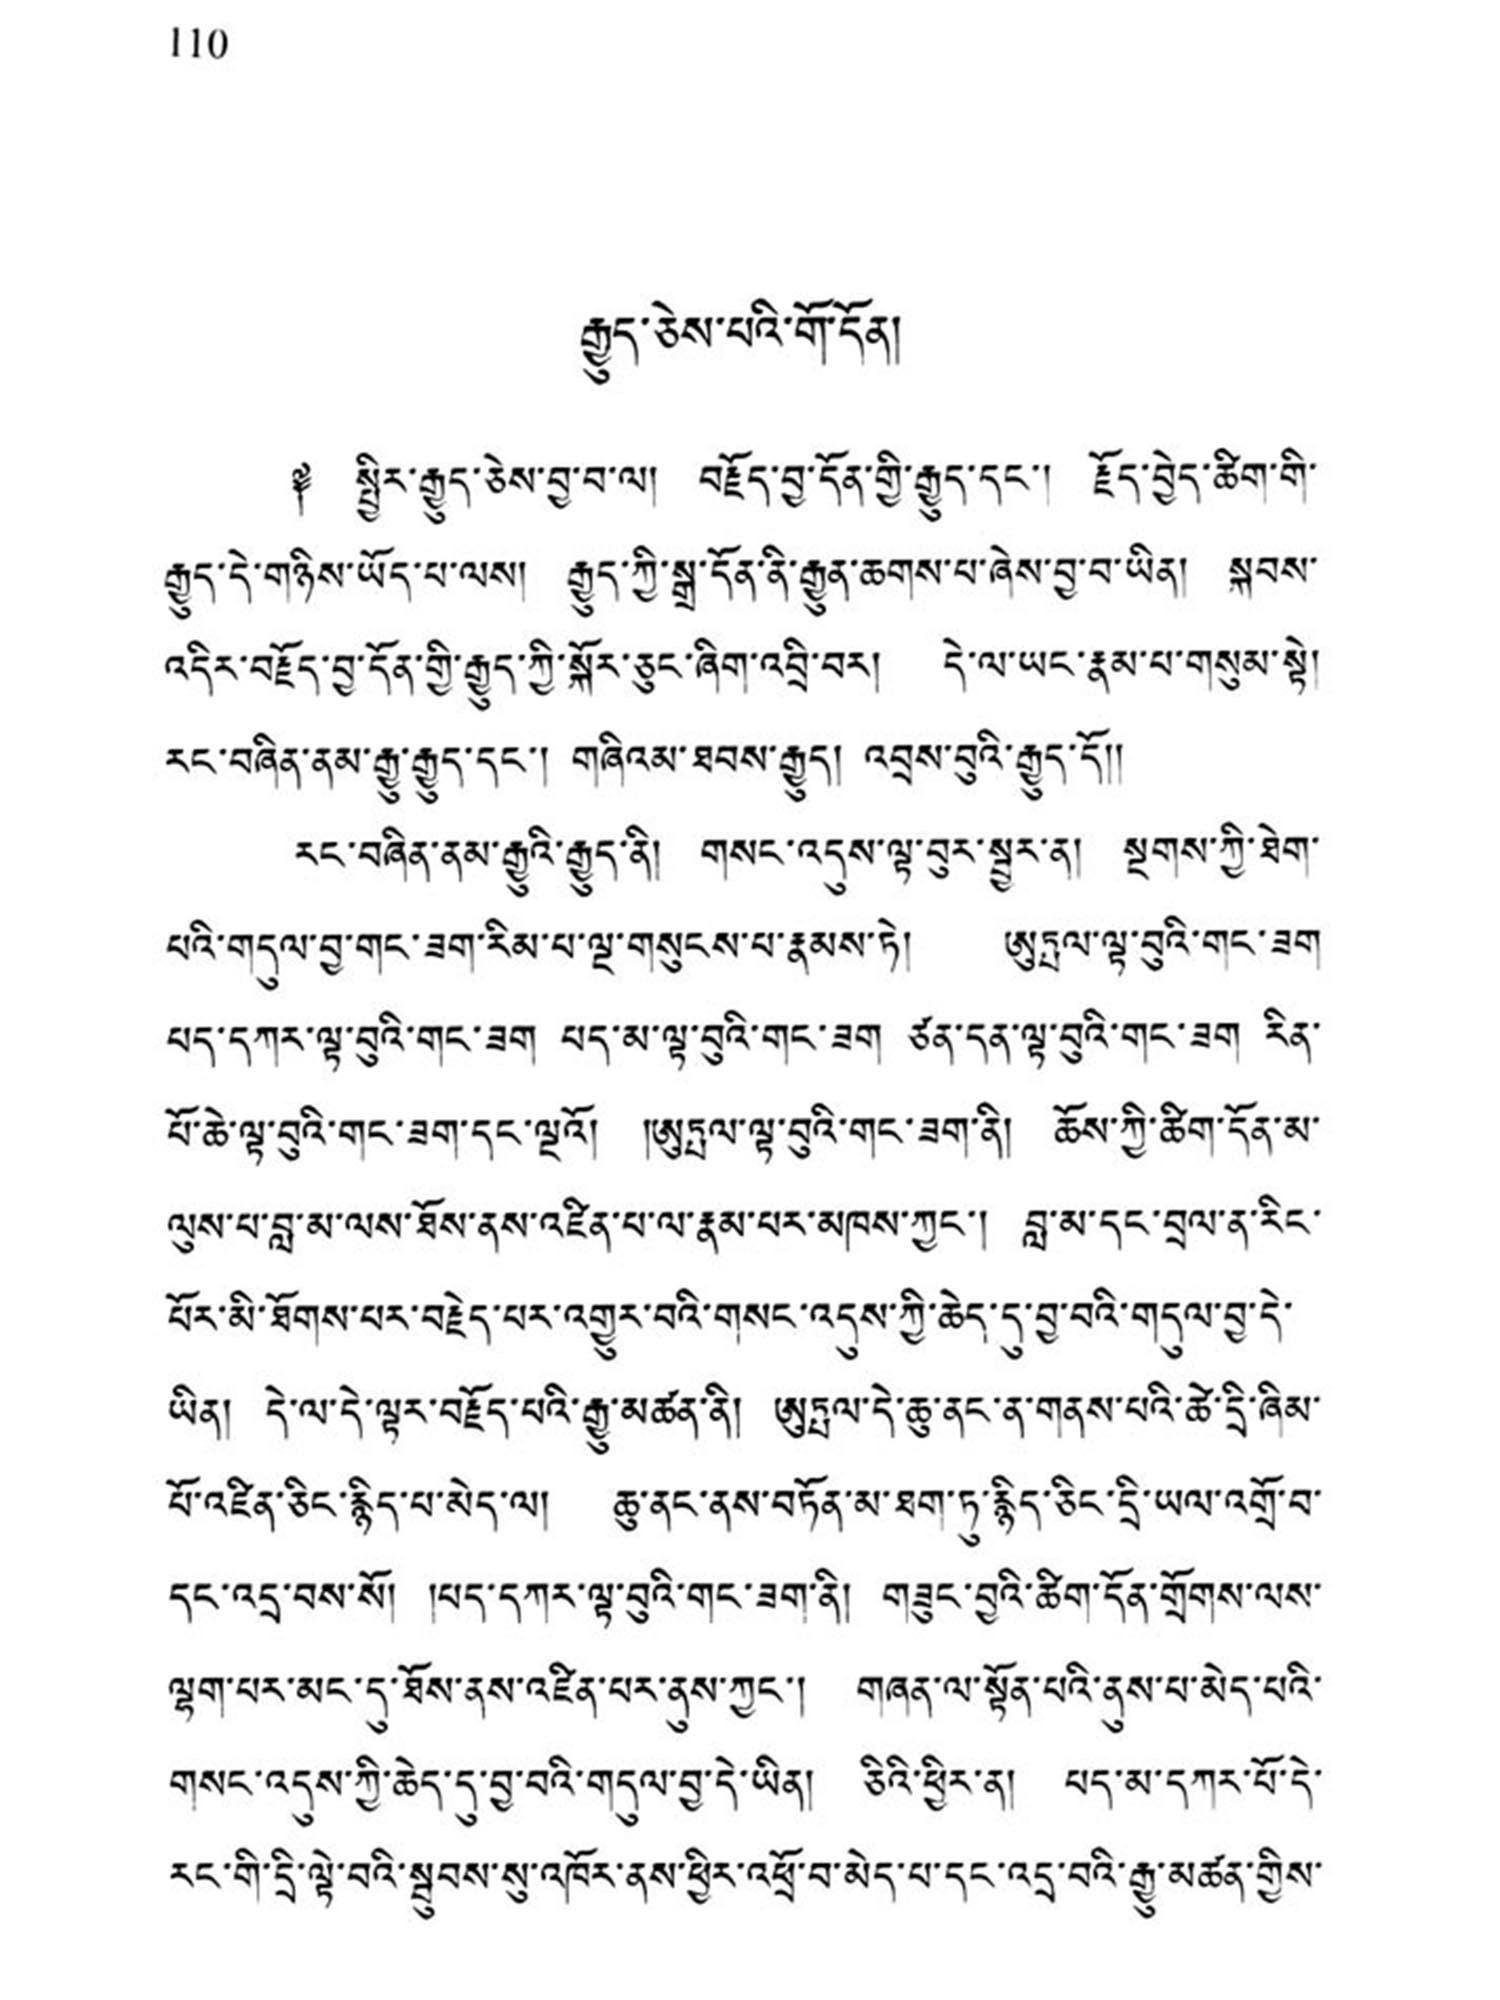 110
རྒྱུད་ཅེས་པའི་གོ་དོན།
༈ སྤྱིར་རྒྱུད་ཅེས་བྱ་བ་ལ། བརྗོད་བྱ་དོན་གྱི་རྒྱུད་དང་། རྗོད་བྱེད་ཚིག་གི་
རྒྱུད་དེ་གཉིས་ཡོད་པ་ལས། རྒྱུད་ཀྱི་སྒྲ་དོན་ནི་རྒྱུན་ཆགས་པ་ཞེས་བྱ་བ་ཡིན། སྐབས་
འདིར་བརྗོད་བྱ་དོན་གྱི་རྒྱུད་ཀྱི་སྐོར་ཅུང་ཞིག་འབྲི་བར། དེ་ལ་ཡང་རྣམ་པ་གསུམ་སྟེ།
རང་བཞིན་ནམ་རྒྱུ་རྒྱུད་དང་། གཞིའམ་ཐབས་རྒྱུད། འབྲས་བུའི་རྒྱུད་དོ།།
རང་བཞིན་ནམ་རྒྱུའི་རྒྱུད་ནི། གསང་འདུས་ལྟ་བུར་སྦྱར་ན། སྔགས་ཀྱི་ཐེག་
པའི་གདུལ་བྱ་གང་ཟག་རིམ་པ་ལྔ་གསུངས་པ་རྣམས་ཏེ། ཨུཏྤལ་ལྟ་བུའི་གང་ཟག
པད་དཀར་ལྟ་བུའི་གང་ཟག པད་མ་ལྟ་བུའི་གང་ཟག ཙན་དན་ལྟ་བུའི་གང་ཟག རིན་
པོ་ཆེ་ལྟ་བུའི་གང་ཟག་དང་ལྔའོ། །ཨུཏྤལ་ལྟ་བུའི་གང་ཟག་ནི། ཆོས་ཀྱི་ཚིག་དོན་མ་
ལུས་པ་བླ་མ་ལས་ཐོས་ནས་འཛིན་པ་ལ་རྣམ་པར་མཁས་ཀྱང་། བླ་མ་དང་བྲལ་ན་རིང་
པོར་མི་ཐོགས་པར་བརྗེད་པར་འགྱུར་བའི་གསང་འདུས་ཀྱི་ཆེད་དུ་བྱ་བའི་གདུལ་བྱ་དེ་
ཡིན། དེ་ལ་དེ་ལྟར་བརྗོད་པའི་རྒྱུ་མཚན་ནི། ཨུཏྤལ་དེ་ཆུ་ནང་ན་གནས་པའི་ཚེ་དྲི་ཞིམ་
པོ་འཛིན་ཅིང་རྙིད་པ་མེད་ལ། ཆུ་ནང་ནས་བཏོན་མ་ཐག་ཏུ་རྙིད་ཅིང་དྲི་ཡལ་འགྲོ་བ་
དང་འདྲ་བས་སོ། །པད་དཀར་ལྟ་བུའི་གང་ཟག་ནི། གཟུང་བྱའི་ཚིག་དོན་གྲོགས་ལས་
ལྷག་པར་མང་དུ་ཐོས་ནས་འཛིན་པར་ནུས་ཀྱང་། གཞན་ལ་སྟོན་པའི་ནུས་པ་མེད་པའི་
གསང་འདུས་ཀྱི་ཆེད་དུ་བྱ་བའི་གདུལ་བྱ་དེ་ཡིན། ཅིའི་ཕྱིར་ན། པད་མ་དཀར་པོ་དེ་
རང་གི་དྲི་ལྟེ་བའི་སྦུབས་སུ་འཁོར་ནས་ཕྱིར་འཕྲོ་བ་མེད་པ་དང་འདྲ་བའི་རྒྱུ་མཚན་གྱིས་